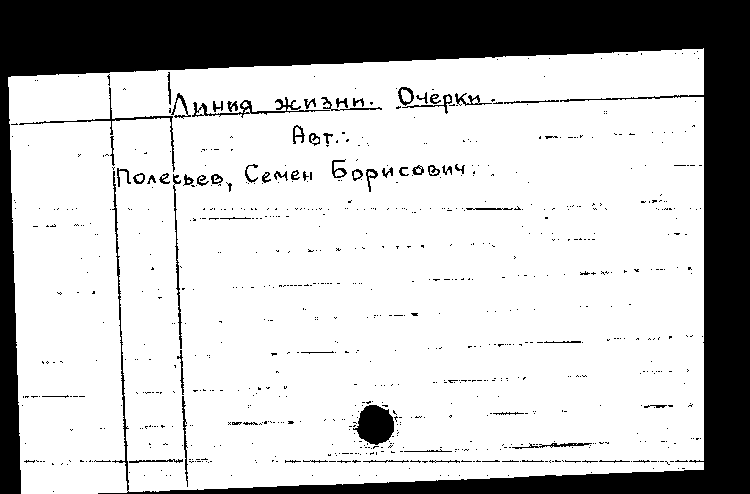 Линия жизни. Очерки.
Авт.:
Полесьев, Семен Борисович.